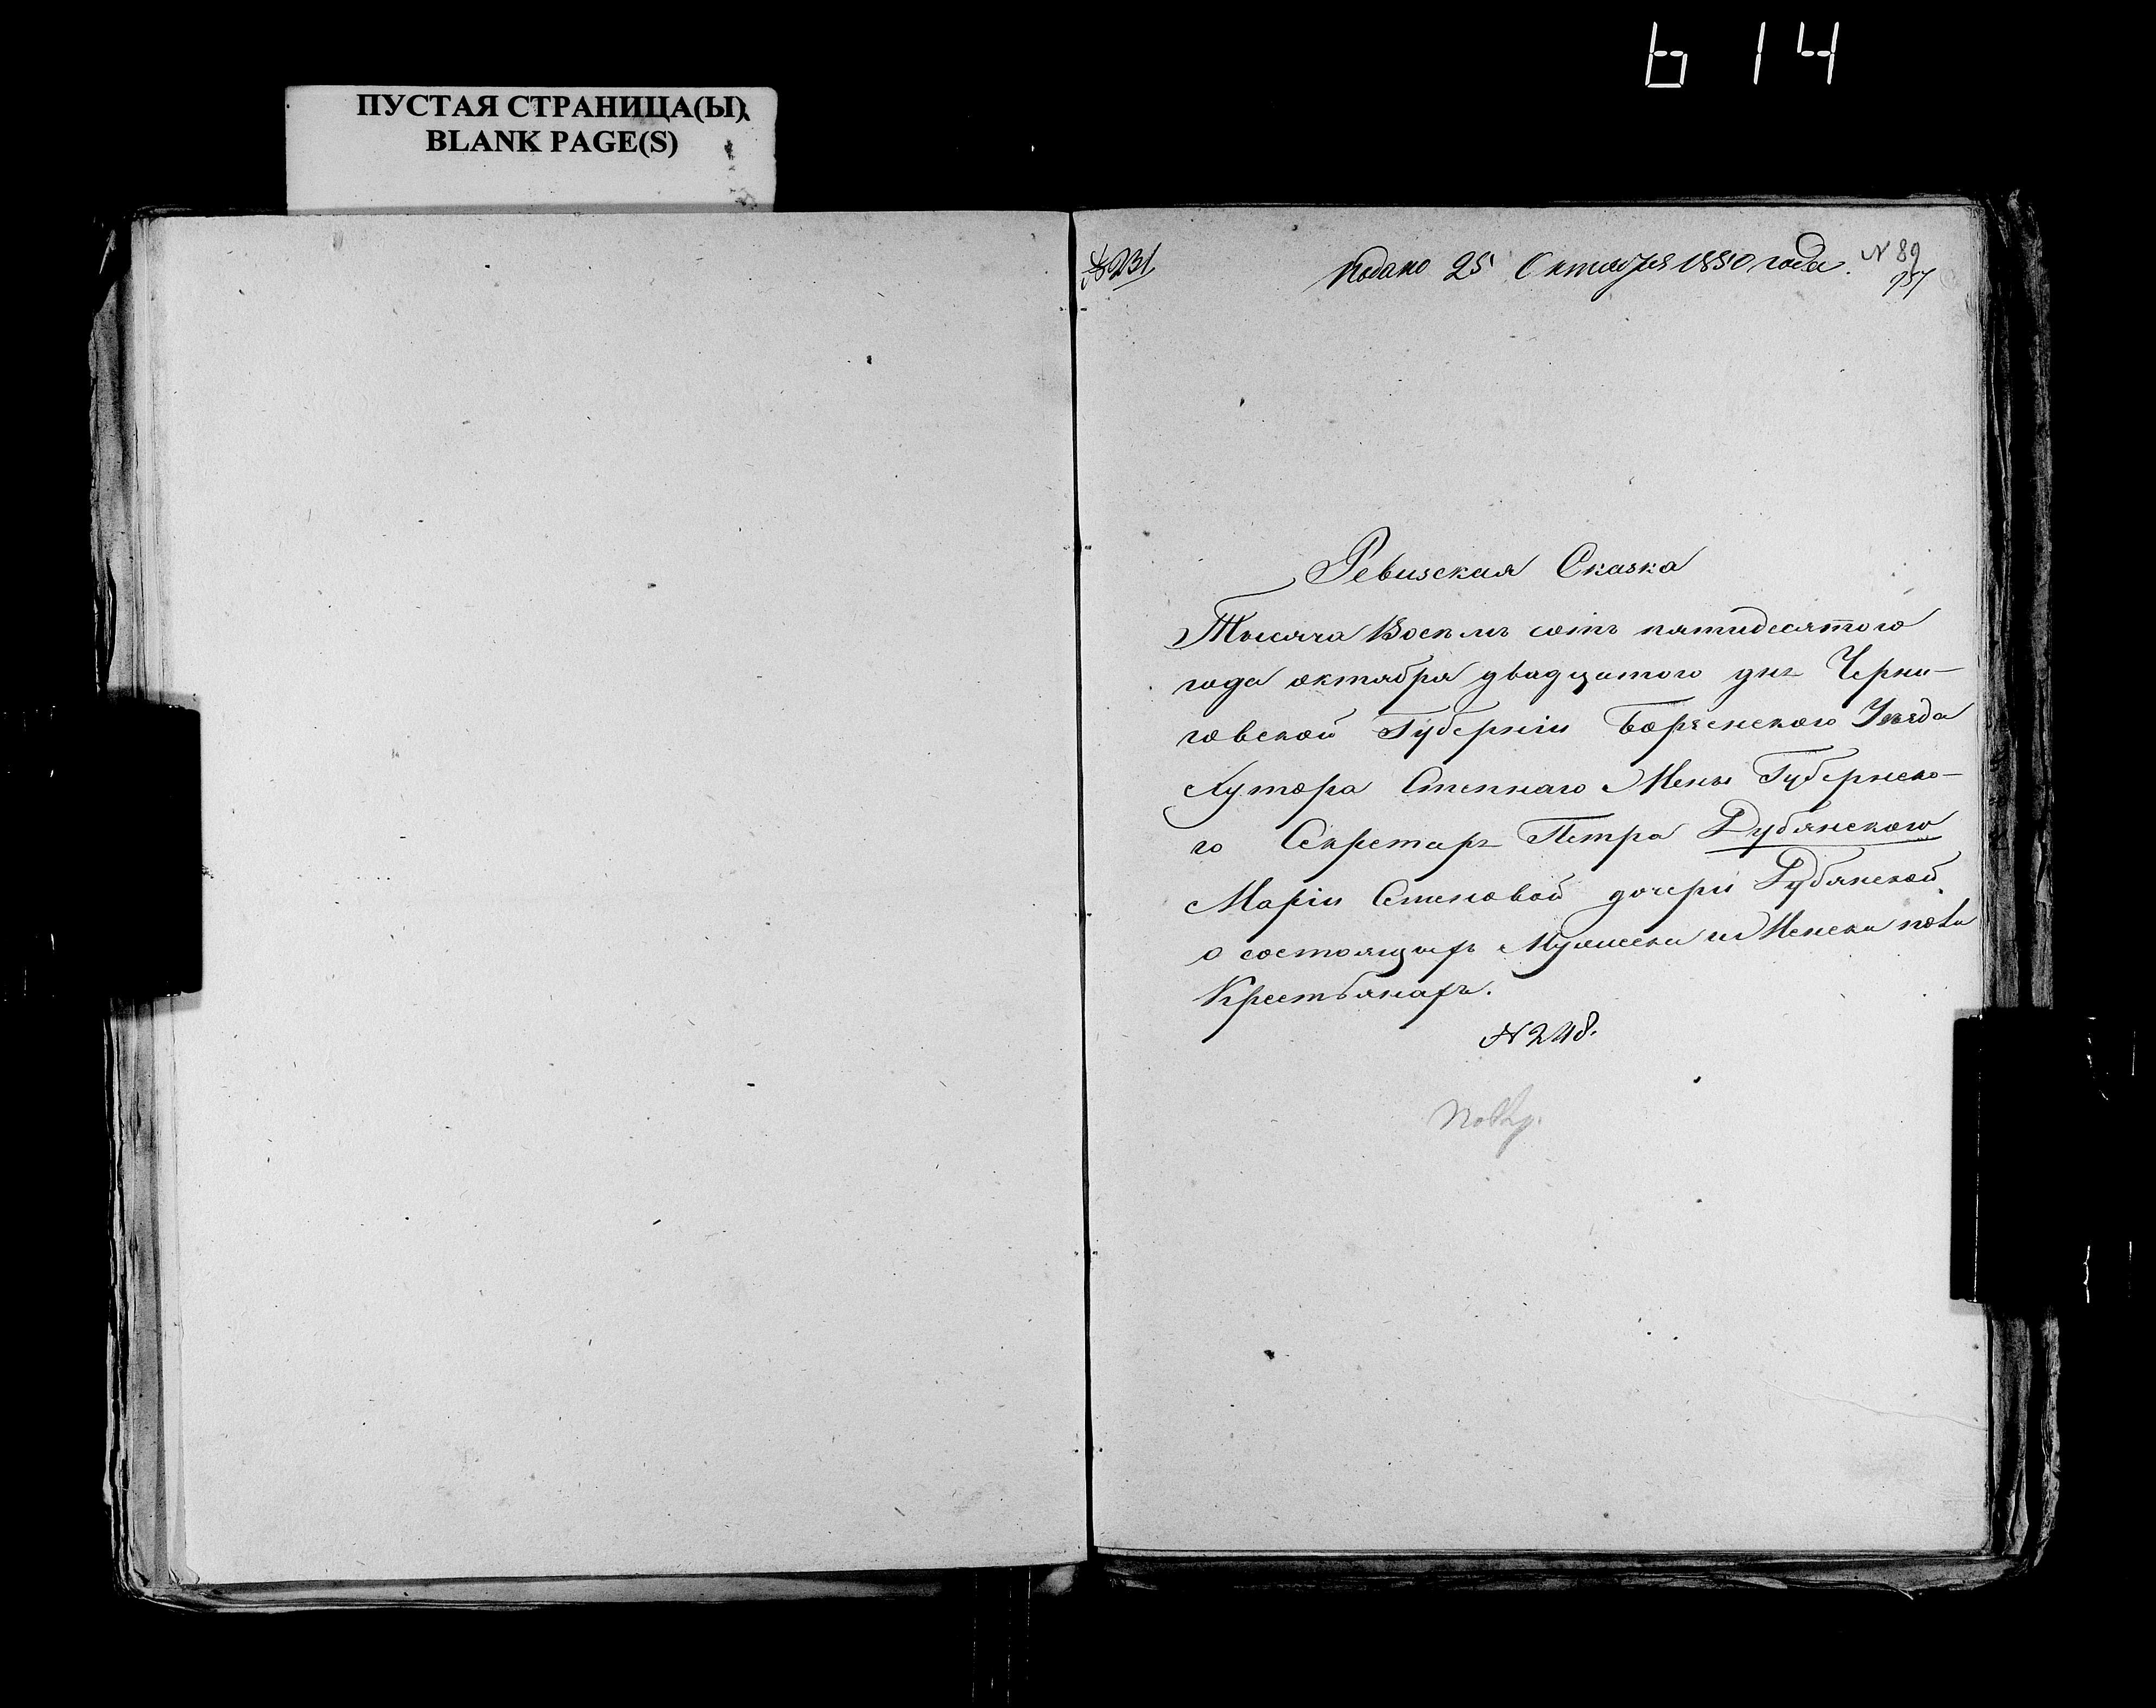 614
ПУСТАЯ СТРАНИЦА(Ы)
BLANK PAGE(S)
№231
Подано 25 Октября 1850 года.
N 89
957
Ревизская Сказка
Тысяча Восемь сотъ пятидесятого
года октября двадцатого дня Черни-
говской Губерніи Борзенского Уезда
Хутора Степнаго Жены Губернско-
го Секретаря Петра Дубянского
Маріи Семеновой дочери Дубянской
о состоящихъ Мужеска и Женска пола
Крестьянахъ.
N 248.